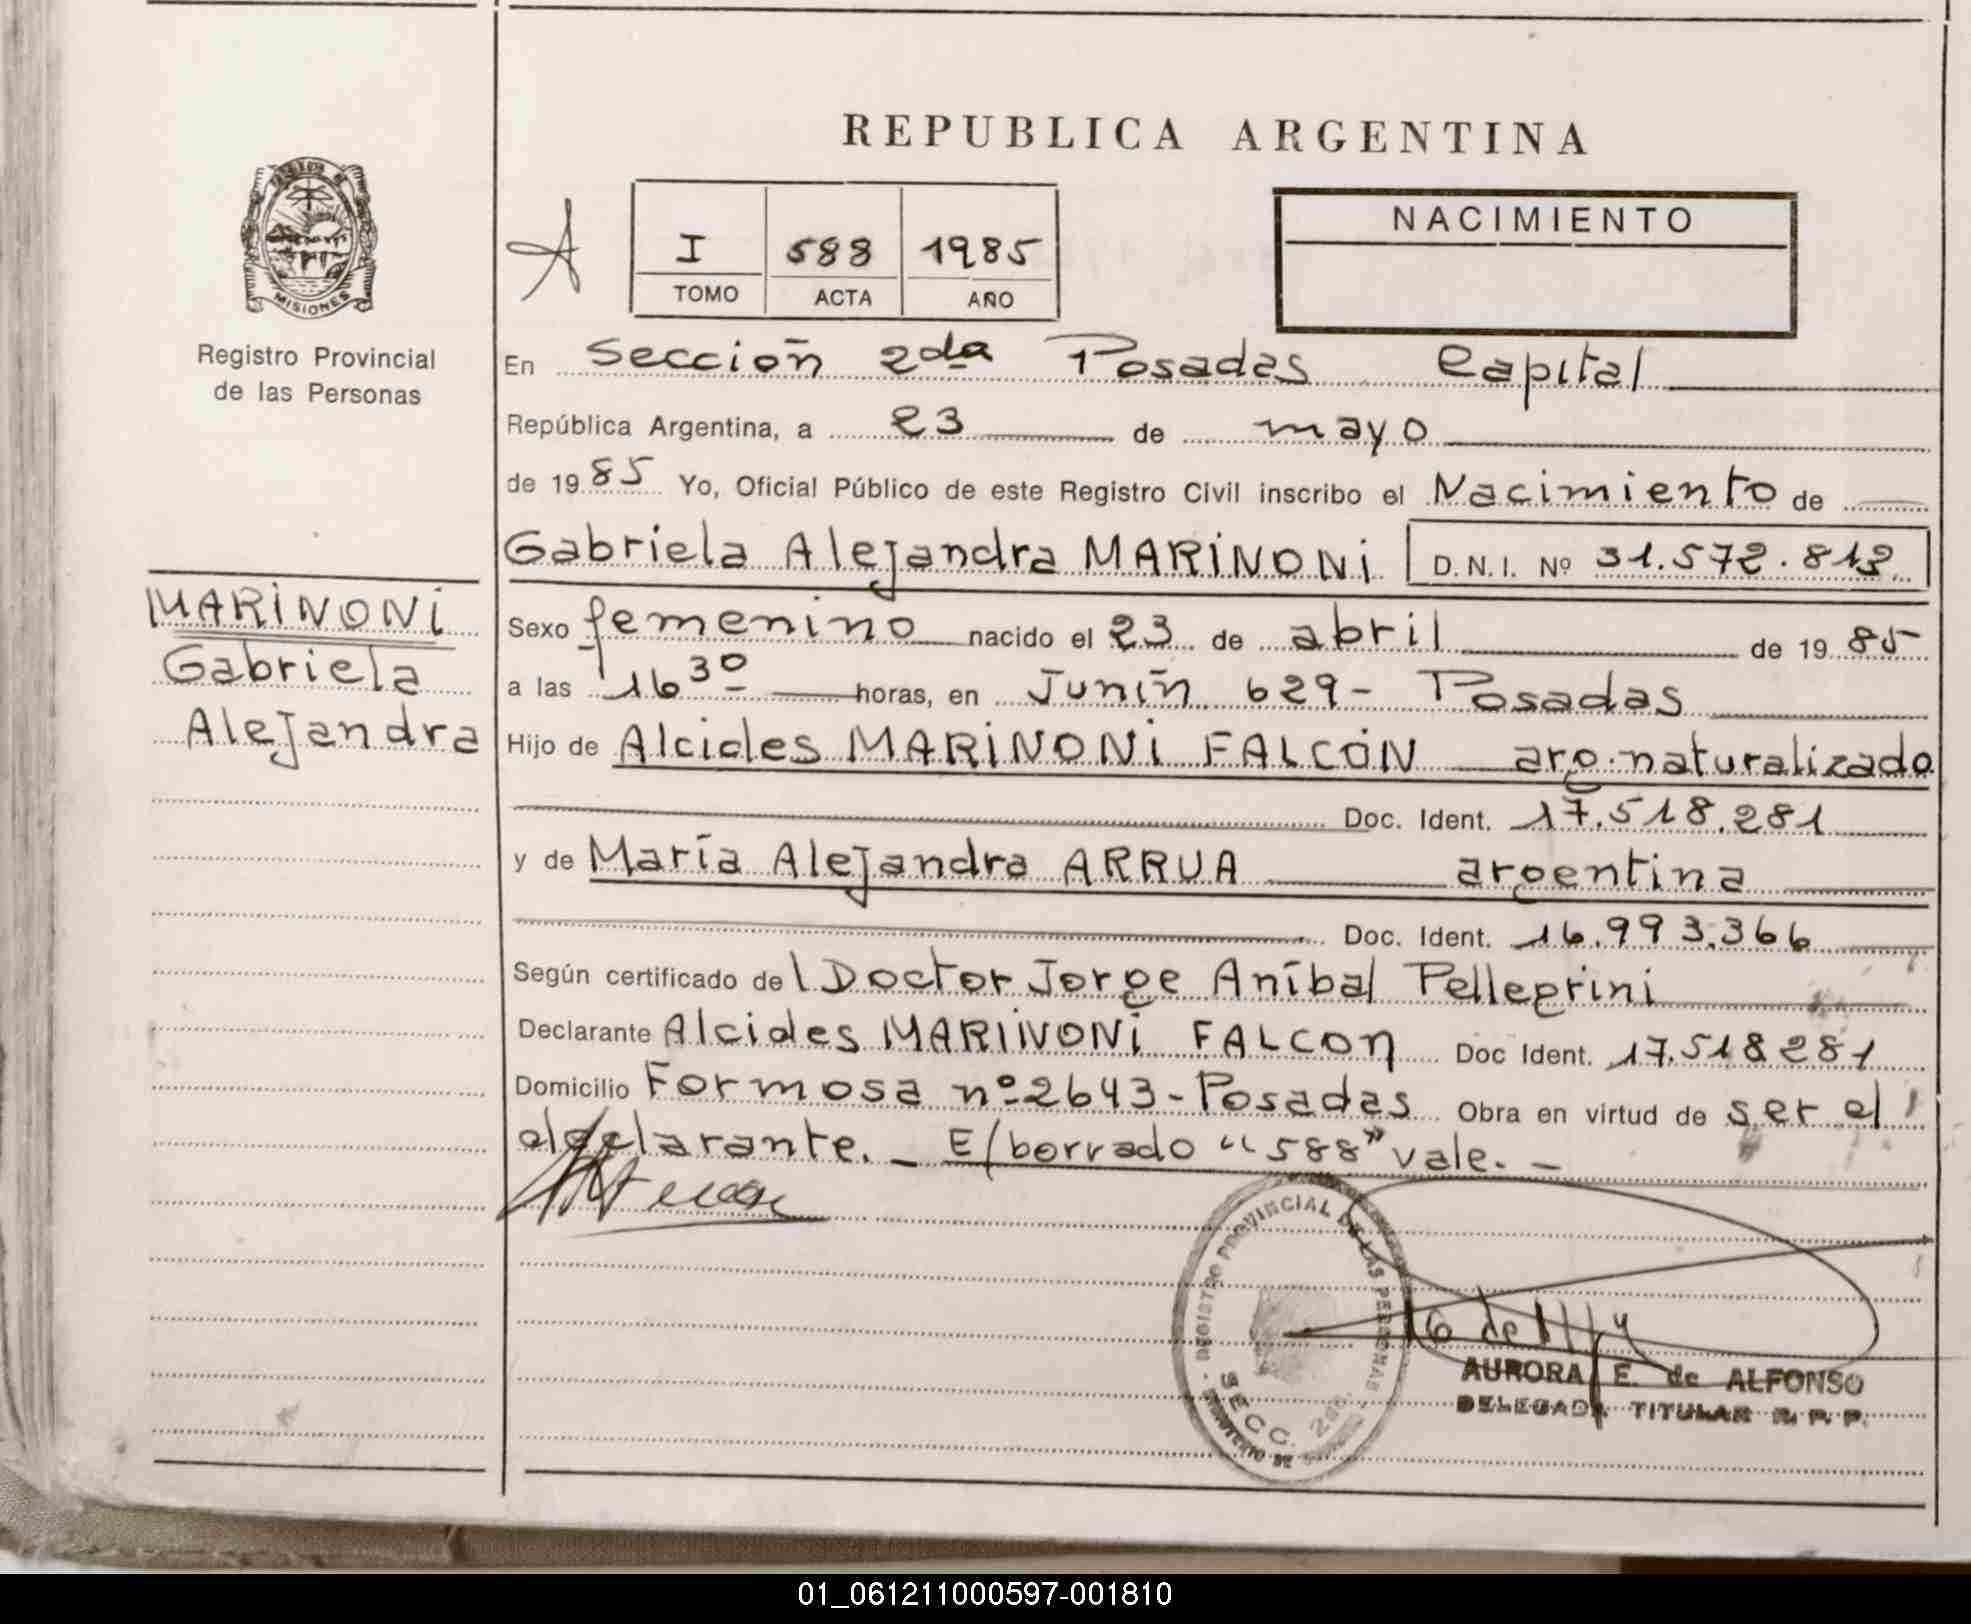 REPUBLICA ARGENTINA
MISIONES
Registro Provincial
de las Personas
A
I 588 1985
TOMO ACTA AÑO
NACIMIENTO
En Sección 2da Posadas Capital
República Argentina, a 23 de mayo
de 1985 Yo, Oficial Público de este Registro Civil inscribo el Nacimiento de
Gabriela Alejandra MARINONI D.N.I. Nº 31.572.813
MARINONI
Gabriela
Alejandra
Sexo femenino nacido el 23 de abril de 1985
a las 16 30 horas, en Junín 629 - Posadas
Hijo de Alcides MARINONI FALCÓN arg. naturalizado
Doc. Ident. 17.518.281
y de María Alejandra ARRUA argentina
Doc. Ident. 16.993.366
Según certificado del Doctor Jorge Aníbal Pellegrini
Declarante Alcides MARINONI FALCON Doc Ident. 17.518281
Domicilio Formosa nº 2643 - Posadas Obra en virtud de ser el
declarante. _ E/borrado "588" vale. _
REGISTRO PROVINCIAL DE LAS PERSONAS
SECC. 2da.
AURORA E. de ALFONSO
DELEGADA TITULAR R. P. P.
01_061211000597-001810